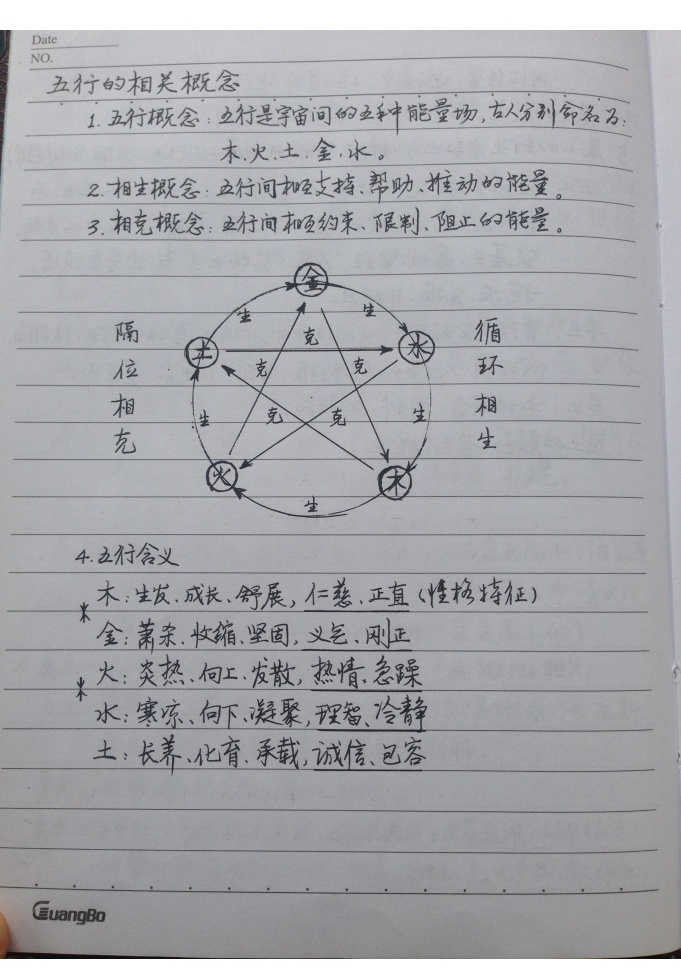 Date
NO.
五行的相关概念
1. 五行概念：五行是宇宙间的五种能量场，古人分别命名为：
木、火、土、金、水。
2. 相生概念：五行间相互支持、帮助、推动的能量。
3. 相克概念：五行间相互约束、限制、阻止的能量。
金
生 生
隔位相克
土 克 水
循环相生
克 克
生 克 克 生
火 木
生
4. 五行含义
木：生发、成长、舒展，仁慈、正直（性格特征）
金：萧杀、收缩、坚固，义气、刚正
火：炎热、向上、发散，热情、急躁
水：寒凉、向下、凝聚，理智、冷静
土：长养、化育、承载，诚信、包容
GuangBo